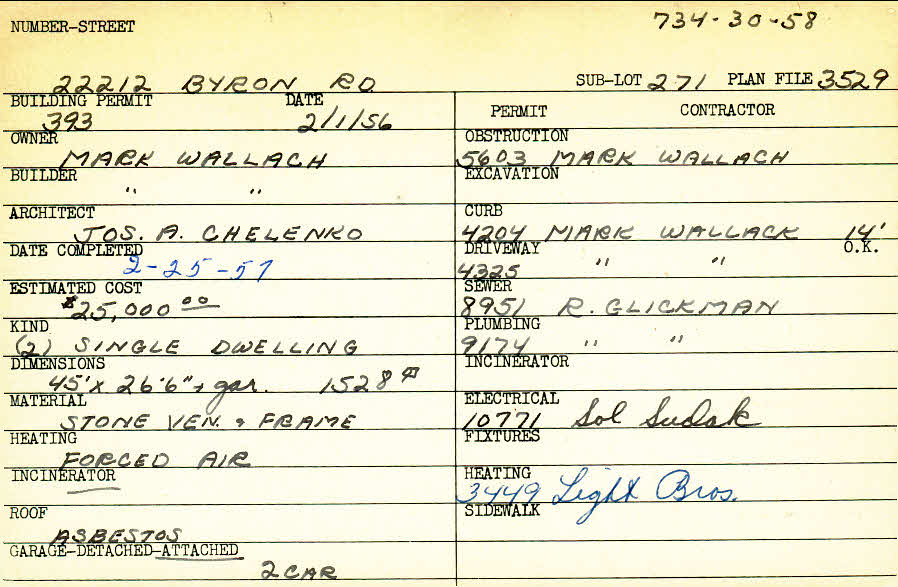 NUMBER-STREET 734-30-58
22212 BYRON RD SUB-LOT 271 PLAN FILE 3529
BUILDING PERMIT DATE
393 2/1/56
OWNER
MARK WALLACH
BUILDER
" "
ARCHITECT
JOS. A. CHELENKO
DATE COMPLETED
2-25-57
ESTIMATED COST
$25,000 00
KIND
(2) SINGLE DWELLING
DIMENSIONS
45' x 26'6" + gar. 1528
MATERIAL
STONE VEN. & FRAME
HEATING
FORCED AIR
INCINERATOR
ROOF
ASBESTOS
GARAGE-DETACHED-ATTACHED
2 CAR
PERMIT CONTRACTOR
OBSTRUCTION
5603 MARK WALLACH
EXCAVATION
CURB
4204 MARK WALLACK 14'
DRIVEWAY O.K.
4325 " "
SEWER
8951 R. GLICKMAN
PLUMBING
9174 " "
INCINERATOR
ELECTRICAL
10771 Sol Sudak
FIXTURES
HEATING
3449 Light Bros.
SIDEWALK